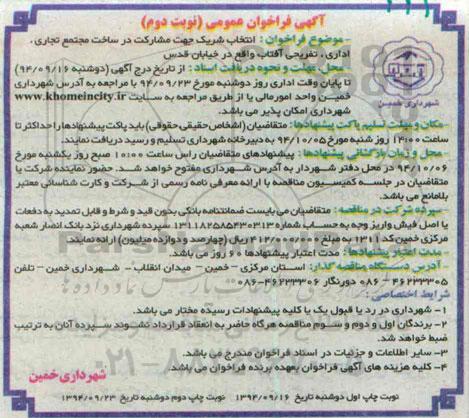 آگهی فراخوان عمومی (نوبت دوم)
شهرداری خمین
- موضوع فراخوان : انتخاب شریک جهت مشارکت در ساخت مجتمع تجاری ،
اداری ، تفریحی آفتاب واقع در خیابان قدس
- محل، مهلت و نحوه دریافت اسناد : از تاریخ درج آگهی (دوشنبه ۹۴/۰۹/۱۶)
تا پایان وقت اداری روز دوشنبه مورخ ۹۴/۰۹/۲۳ با مراجعه به آدرس شهرداری
خمین واحد امورمالی یا از طریق مراجعه به سایت www.khomeincity.ir
شهرداری امکان پذیر می باشد.
-مکان و مهلت تسلیم پاکت پیشنهادها : متقاضیان (اشخاص حقیقی حقوقی) باید پاکت پیشنهادها را حداکثر تا
ساعت ۱۴:۰۰ روز شنبه مورخ ۹۴/۱۰/۰۵ به دبیرخانه شهرداری تسلیم و رسید دریافت نمایند.
- محل و زمان بازگشائی پیشنهادها : پیشنهادهای متقاضیان راس ساعت ۱۰:۰۰ صبح روز یکشنبه مورخ
۹۴/۱۰/۰۶ در محل دفتر شهردار به آدرس شهرداری مفتوح خواهد شد. حضور نماینده شرکت یا
متقاضیان در جلسه کمیسیون مناقصه با ارائه معرفی نامه رسمی از شرکت و کارت شناسائی معتبر
بلامانع می باشد.
-سپرده شرکت در مناقصه : متقاضیان می بایست ضمانتنامه بانکی بدون قید و شرط و قابل تمدید به دفعات
یا اصل فیش واریز وجه به حساب شماره ۱۳۱۱۸۲۵۸۵۴۳۰۳۱۳ سپرده شهرداری نزد بانک انصار شعبه
مرکزی خمین کد ۱۳۱۱ به مبلغ ۴۱۲/۰۰۰/۰۰۰ ریال (چهارصد و دوازده میلیون) ارائه نمایند.
- مدت اعتبار پیشنهادها : مدت اعتبار پیشنهادها ۶۰ روز می باشد.
- آدرس دستگاه مناقصه گذار: استان مرکزی - خمین - میدان انقلاب - شهرداری خمین - تلفن
۴۶۲۳۳۳۰۵-۰۸۶ دورنگار ۴۶۲۳۳۳۰۶-۰۸۶
شرایط اختصاصی :
۱- شهرداری در رد یا قبول یک یا کلیه پیشنهادات رسیده مختار می باشد.
۲- برندگان اول و دوم و سوم مناقصه هرگاه حاضر به انعقاد قرارداد نشوند سپرده آنان به ترتیب
ضبط خواهد شد.
۳- سایر اطلاعات و جزئیات در اسناد فراخوان مندرج می باشد.
۴- کلیه هزینه های آگهی فراخوان بعهده برنده فراخوان می باشد.
شهرداری خمین
نوبت چاپ اول دوشنبه تاریخ ۱۳۹۴/۰۹/۱۶ نوبت چاپ دوم دوشنبه تاریخ ۱۳۹۴/۰۹/۲۳